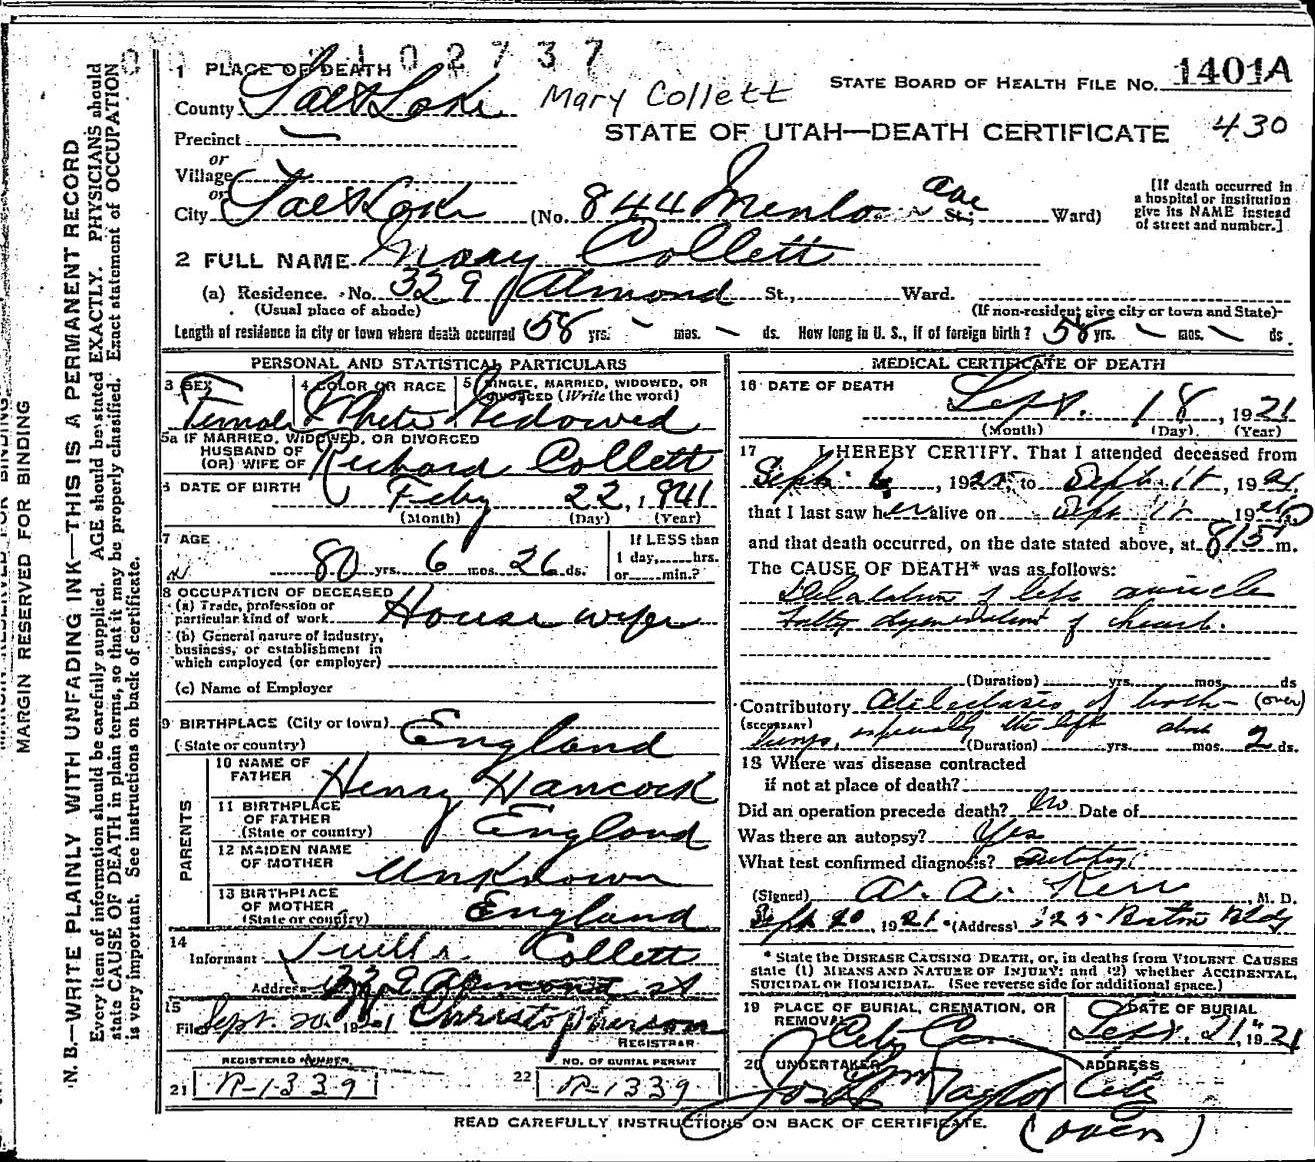 102737
1 PLACE OF DEATH
STATE BOARD OF HEALTH FILE NO. 1401A
County Salt Lake
Mary Collett
STATE OF UTAH—DEATH CERTIFICATE 430
Precinct
or
Village
or
City Salt Lake (No. 844 Menlo Ave St; Ward)
[If death occurred in
a hospital or institution
give its NAME instead
of street and number.]
2 FULL NAME Mary Collett
(a) Residence. No. 329 Almond St., Ward.
(Usual place of abode) (If non-resident give city or town and State)
Length of residence in city or town where death occurred 58 yrs. - mos. - ds. How long in U. S., if of foreign birth? 58 yrs. - mos. - ds.
PERSONAL AND STATISTICAL PARTICULARS
3 SEX 4 COLOR OR RACE 5 SINGLE, MARRIED, WIDOWED, OR
DIVORCED (Write the word)
Female White Widowed
5a IF MARRIED, WIDOWED, OR DIVORCED
HUSBAND OF
(OR) WIFE OF Richard Collett
6 DATE OF BIRTH Feby 22, 1841
(Month) (Day) (Year)
7 AGE
80 yrs. 6 mos. 26 ds.
If LESS than
1 day, hrs.
or min.?
8 OCCUPATION OF DECEASED
(a) Trade, profession or
particular kind of work House wife
(b) General nature of industry,
business, or establishment in
which employed (or employer)
(c) Name of Employer
9 BIRTHPLACE (City or town)
(State or country) England
PARENTS
10 NAME OF
FATHER Henry Hancock
11 BIRTHPLACE
OF FATHER
(State or country) England
12 MAIDEN NAME
OF MOTHER Unknown
13 BIRTHPLACE
OF MOTHER
(State or country) England
14
Informant Collett
Address 329 Almond St
15
Filed Sept. 20, 1921 Christopherson
REGISTRAR
REGISTERED NUMBER NO. OF BURIAL PERMIT
21 R-1339 22 R-1339
MEDICAL CERTIFICATE OF DEATH
16 DATE OF DEATH
Sept. 18, 1921
(Month) (Day) (Year)
17 I HEREBY CERTIFY, That I attended deceased from
Sept. 6, 1921, to Sept 18, 1921
that I last saw her alive on Sept 18 1921
and that death occurred, on the date stated above, at 815 m.
The CAUSE OF DEATH* was as follows:
Dilatation of left auricle
fatty degeneration of heart.
(Duration) yrs. mos. ds
Contributory Atelectasis of both (over)
(SECONDARY)
lungs, especially the left about
(Duration) yrs. mos. 2 ds.
18 Where was disease contracted
if not at place of death?
Did an operation precede death? No Date of
Was there an autopsy? Yes
What test confirmed diagnosis? Autopsy
(Signed) A. A. Kerr M. D.
Sept 20, 1921 (Address) Boston Bldg
* State the DISEASE CAUSING DEATH, or, in deaths from VIOLENT CAUSES
state (1) MEANS AND NATURE OF INJURY; and (2) whether ACCIDENTAL,
SUICIDAL OR HOMICIDAL. (See reverse side for additional space.)
19 PLACE OF BURIAL, CREMATION, OR
REMOVAL City Cem
DATE OF BURIAL
Sept. 21, 1921
20 UNDERTAKER
Jos Wm Taylor
ADDRESS
City
READ CAREFULLY INSTRUCTIONS ON BACK OF CERTIFICATE.
(over)
MARGIN RESERVED FOR BINDING
N. B.—WRITE PLAINLY WITH UNFADING INK—THIS IS A PERMANENT RECORD
Every item of information should be carefully supplied. AGE should be stated EXACTLY. PHYSICIANS should
state CAUSE OF DEATH in plain terms, so that it may be properly classified. Exact statement of OCCUPATION
is very important. See instructions on back of certificate.